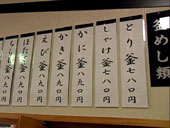 釜めし類
とり釜七八〇円
しゃけ釜七八〇円
かに釜八九〇円
かき釜八九〇円
えび釜八九〇円
ほたて釜八九〇円